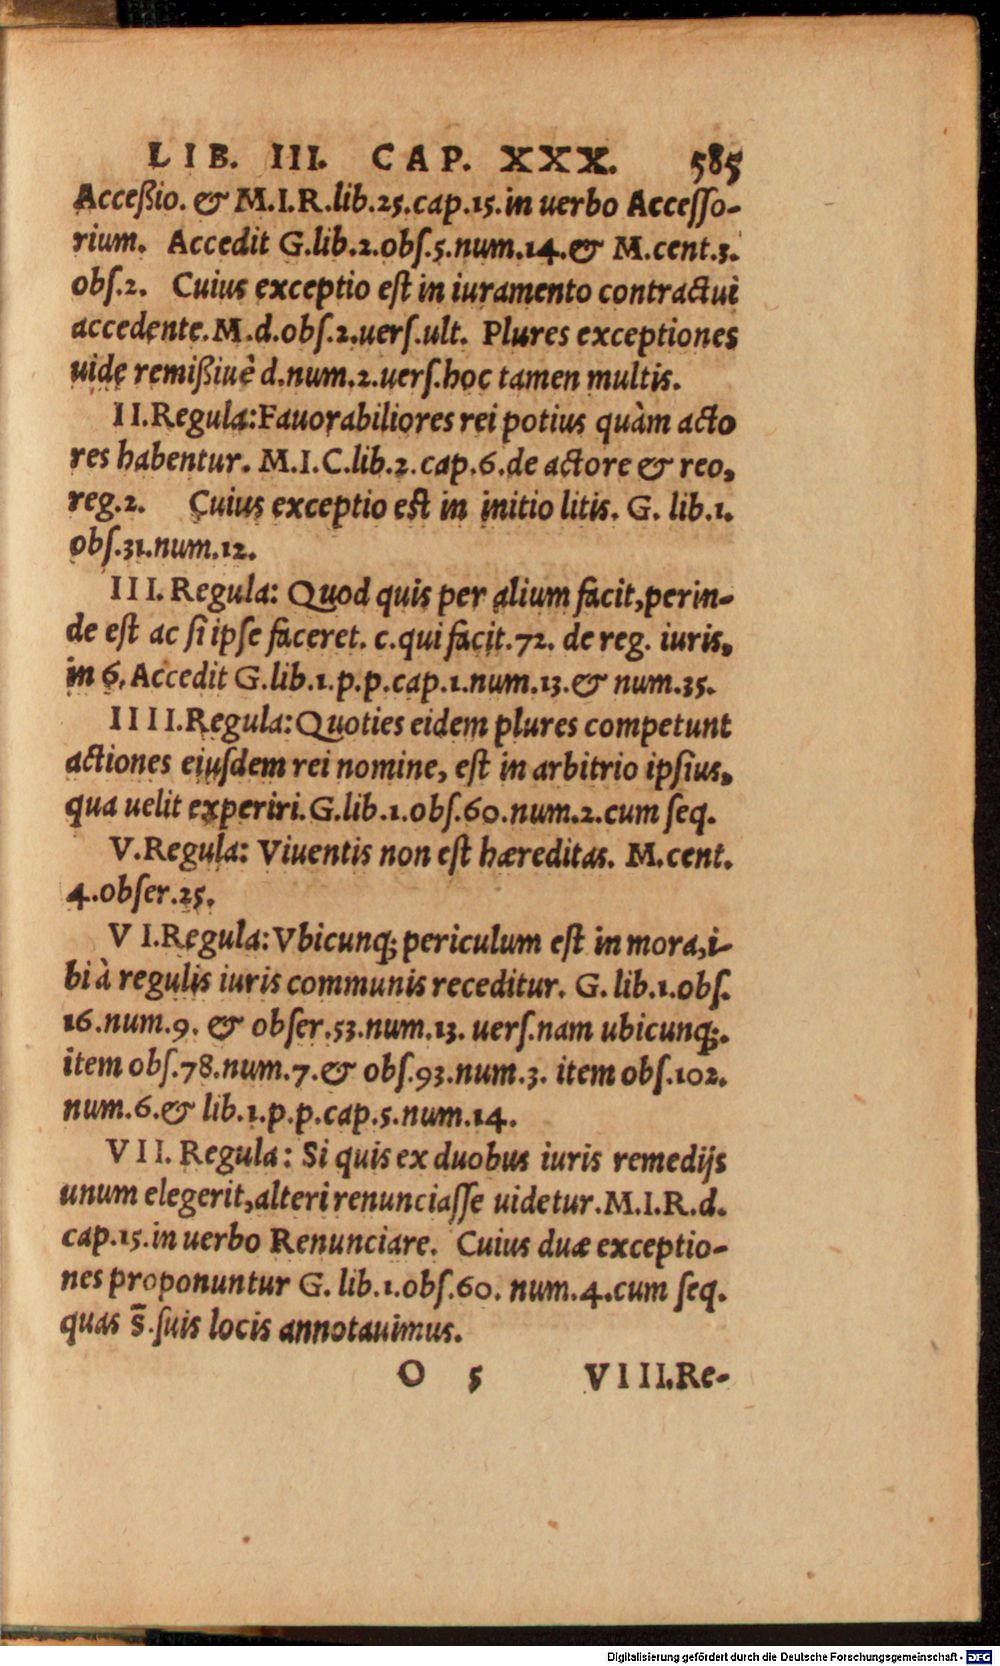 LIB. III. CAP. XXX. 585
Acceßio. & M.I.R.lib.25.cap.15.in uerbo Accesso-
rium. Accedit G.lib.2.obs.5.num.14.& M.cent.3.
obs.2. Cuius exceptio est in iuramento contractui
accedente.M.d.obs.2.uers.ult. Plures exceptiones
uide remißiuè d.num.2.uers.hoc tamen multis.
II.Regula:Fauorabiliores rei potius quàm acto
res habentur. M.I.C.lib.2.cap.6.de actore & reo,
reg.2. Cuius exceptio est in initio litis. G. lib.1.
obs.31.num.12.
III. Regula: Quod quis per alium facit,perin-
de est ac si ipse faceret. c.qui facit.72. de reg. iuris,
in 6. Accedit G.lib.1.p.p.cap.1.num.13.& num.35.
IIII.Regula:Quoties eidem plures competunt
actiones eiusdem rei nomine, est in arbitrio ipsius,
qua uelit experiri.G.lib.1.obs.60.num.2.cum seq.
V.Regula: Viuentis non est hæreditas. M.cent.
4.obser.25.
VI.Regula:Vbicunq; periculum est in mora,i-
bi à regulis iuris communis receditur. G. lib.1.obs.
16.num.9. & obser.53.num.13. uers.nam ubicunq;.
item obs.78.num.7.& obs.93.num.3. item obs.102.
num.6.& lib.1.p.p.cap.5.num.14.
VII. Regula: Si quis ex duobus iuris remedijs
unum elegerit,alteri renunciasse uidetur.M.I.R.d.
cap.15.in uerbo Renunciare. Cuius duæ exceptio-
nes proponuntur G. lib.1.obs.60. num.4.cum seq.
quas s̄.suis locis annotauimus.
O 5 VIII.Re-
Digitalisierung gefördert durch die Deutsche Forschungsgemeinschaft - DFG